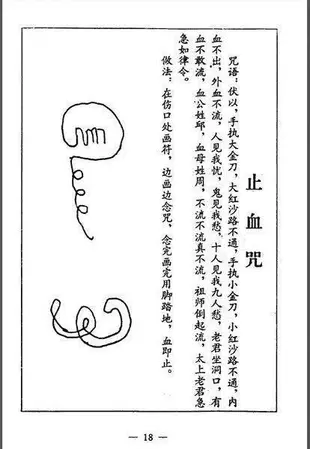 止血咒
咒语：伏以，手执大金刀，大红沙路不通，手执小金刀，小红沙路不通，内
血不出，外血不流，人见我忧，鬼见我愁，十人见我九人愁，老君坐洞口，有
血不敢流，血公姓邱，血母姓周，不流不流真不流，祖师倒起流，太上老君急
急如律令。
做法：在伤口处画符，边画边念咒，念完画完用脚踏地，血即止。
— 18 —